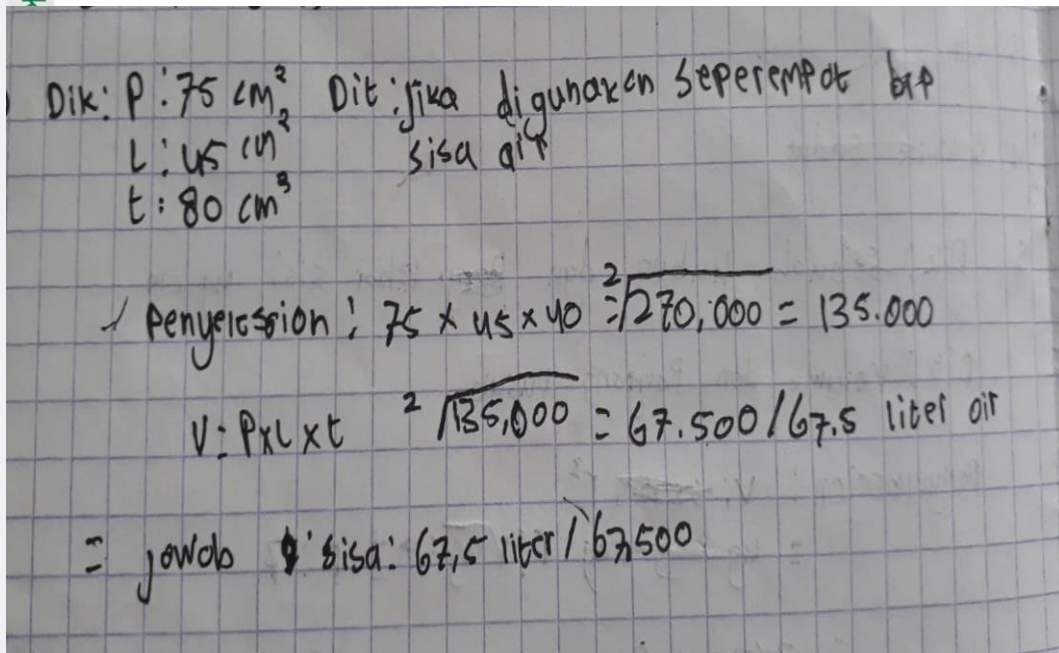 Dik: P: 75 cm² Dit: jika digunakan seperempat brp
L: 45 cm² sisa air
t: 80 cm³
Penyelession: 75 x 45 x 40 = 2√270,000 = 135.000
V: PxLxt 2√135,000 = 67.500/67.5 liter air
= jawab sisa: 67,5 liter / 67,500